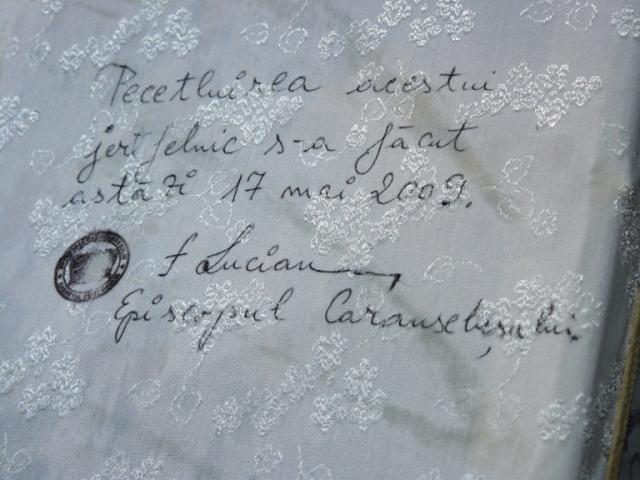 Pecetluirea acestui
jertfelnic s-a făcut
astăzi 17 mai 2009.
† Lucian
Episcopul Caransebeșului.